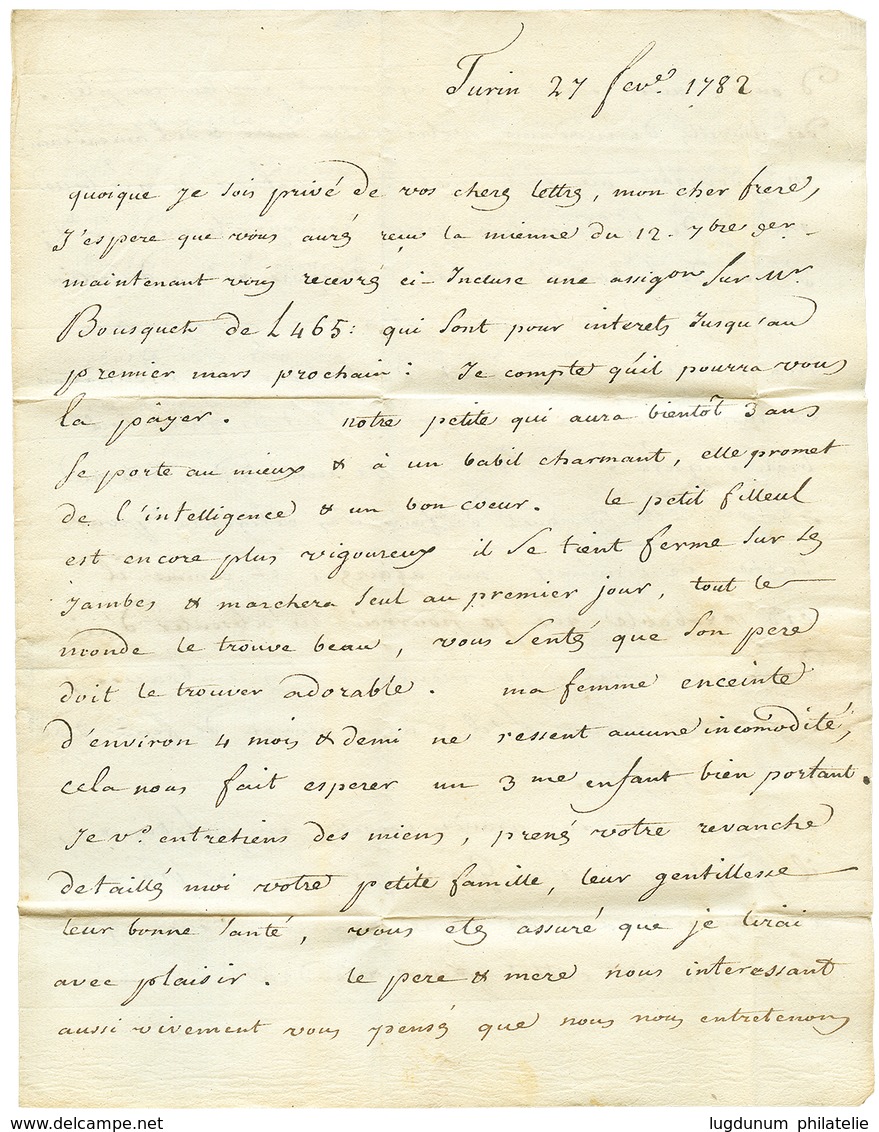 Turin 27 fev.º 1782
quoique je sois privé de vos cheres lettres, mon cher frere,
J'espere que vous aurés reçu la mienne du 12. 7bre der.
maintenant vous recevrés ci-Incluse une assigon sur Mr
Bousquet de L465: qui sont pour interets Jusqu'au
premier mars prochain: Je compte qu'il pourra vous
la pâyer. notre petite qui aura bientôt 3 ans
se porte au mieux & à un babil charmant, elle promet
de l'intelligence & un bon coeur. le petit filleul
est encore plus vigoureux il se tient ferme sur les
Jambes & marchera seul au premier jour, tout le
monde le trouve beau, vous sentés que son pere
doit le trouver adorable. ma femme enceinte
d'environ 4 mois & demi ne ressent aucune incomodité,
cela nous fait esperer un 3me enfant bien portant.
Je v.s entretiens des miens, prenés votre revanche
detaillés moi votre petite famille, leur gentillesse
leur bonne santé, vous etes assuré que je lirai
avec plaisir. le pere & mere nous interessant
aussi vivement vous pensés que nous nous entretenons
lugdunum philatelie